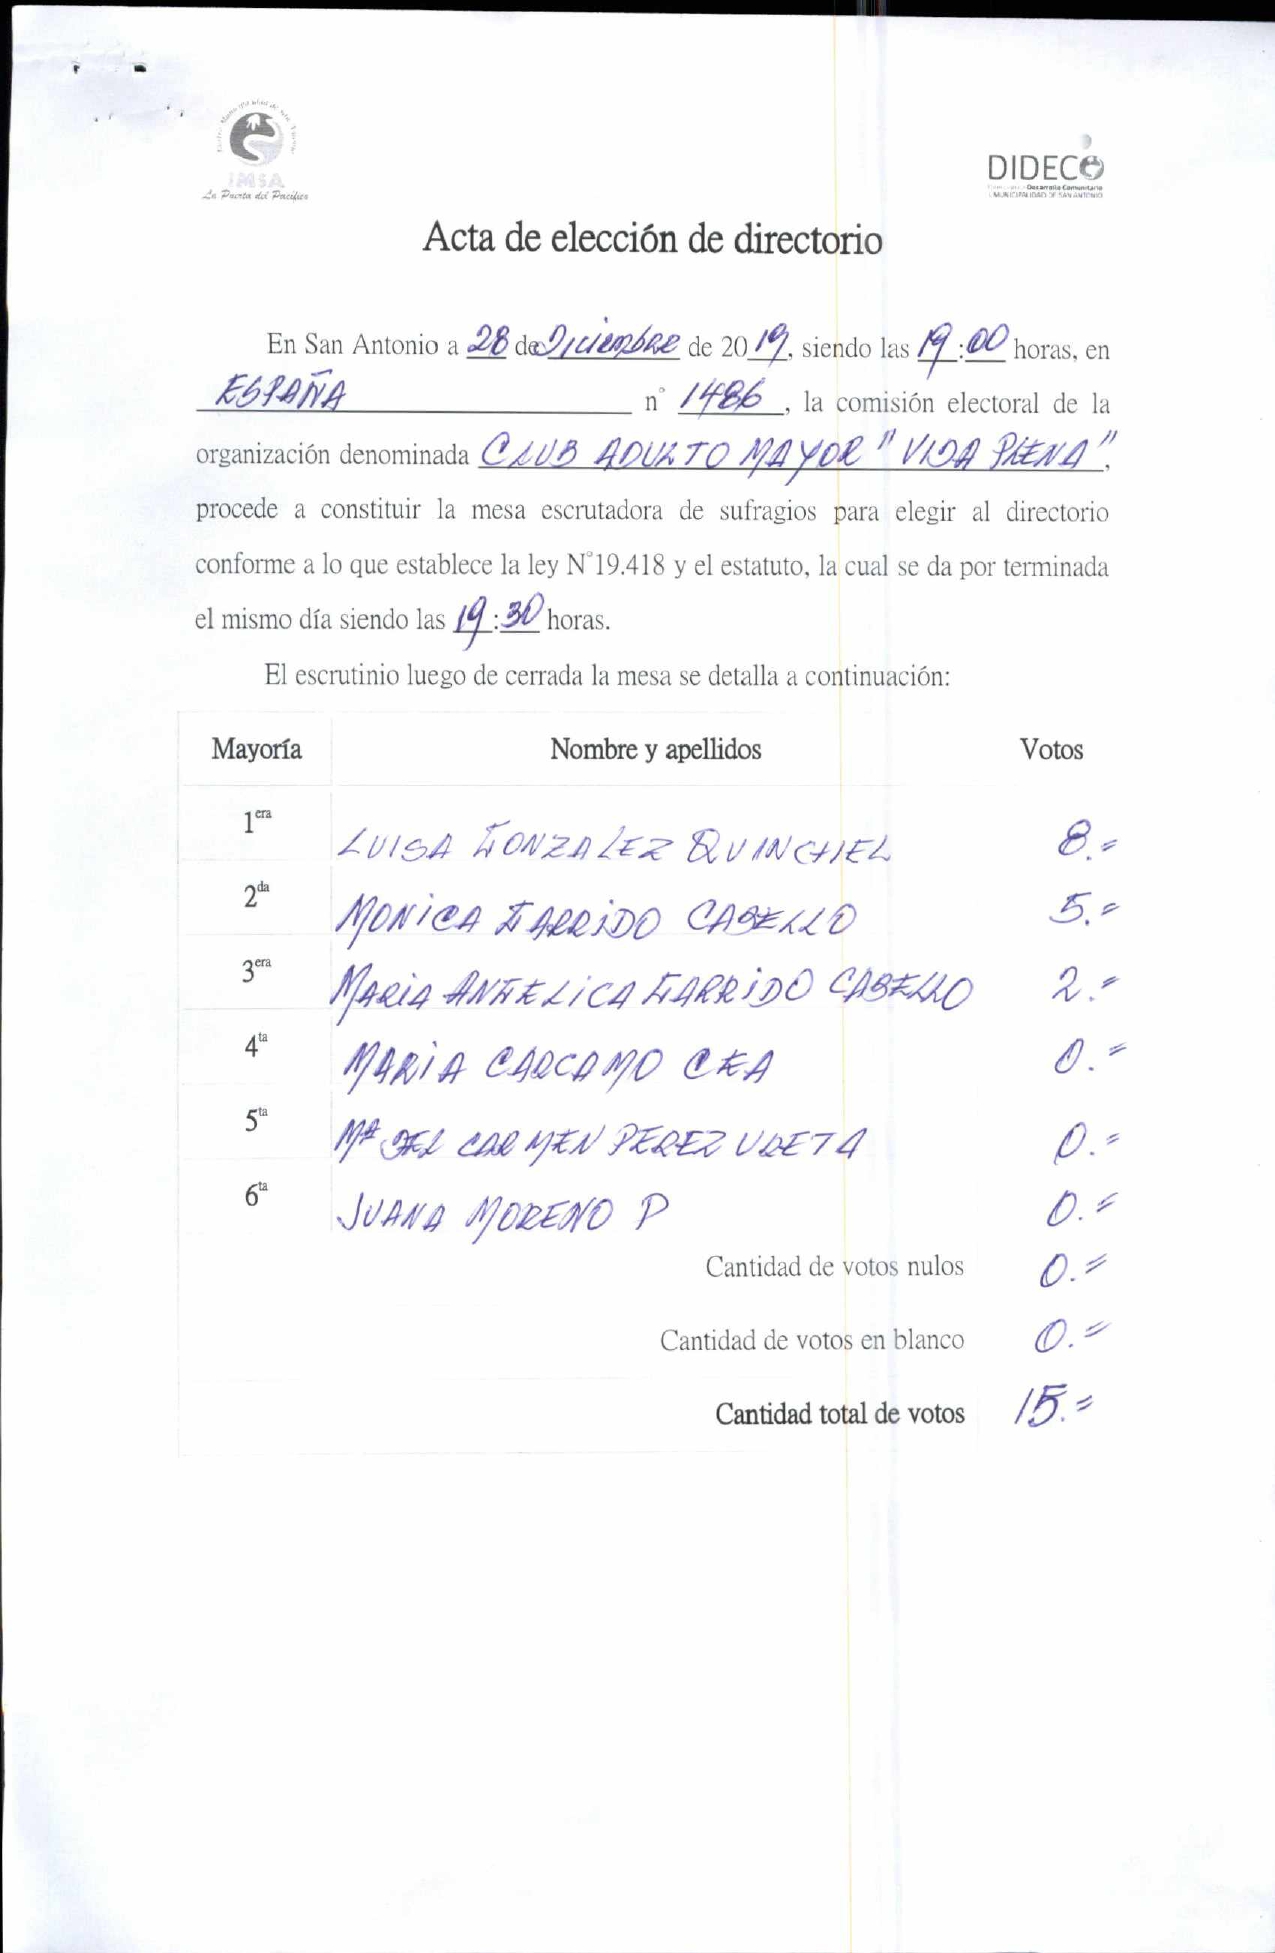 IMSA
La Puerta del Pacífico
DIDECO
Desarrollo Comunitario
MUNICIPALIDAD DE SAN ANTONIO
Acta de elección de directorio
En San Antonio a 28 de Diciembre de 2019, siendo las 19:00 horas, en
ESPAÑA n° 1486, la comisión electoral de la
organización denominada CLUB ADULTO MAYOR "VIDA PLENA",
procede a constituir la mesa escrutadora de sufragios para elegir al directorio
conforme a lo que establece la ley N°19.418 y el estatuto, la cual se da por terminada
el mismo día siendo las 19:30 horas.
El escrutinio luego de cerrada la mesa se detalla a continuación:
Mayoría Nombre y apellidos Votos
1era LUISA GONZALEZ QUINCHEL 8.=
2da MONICA GARRIDO CABELLO 5.=
3era MARIA ANGELICA GARRIDO CABELLO 2.=
4ta MARIA CARCAMO CEA 0.=
5ta Mª DEL CARMEN PEREZ URETA 0.=
6ta JUANA MORENO P 0.=
Cantidad de votos nulos 0.=
Cantidad de votos en blanco 0.=
Cantidad total de votos 15.=